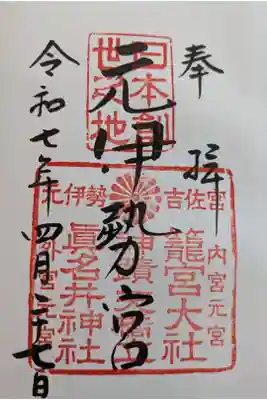 奉拝
日本創
元伊勢宮
元伊勢 吉佐宮
内宮元宮
籠宮大社
眞名井神社
外宮元宮
令和七年四月二十七日